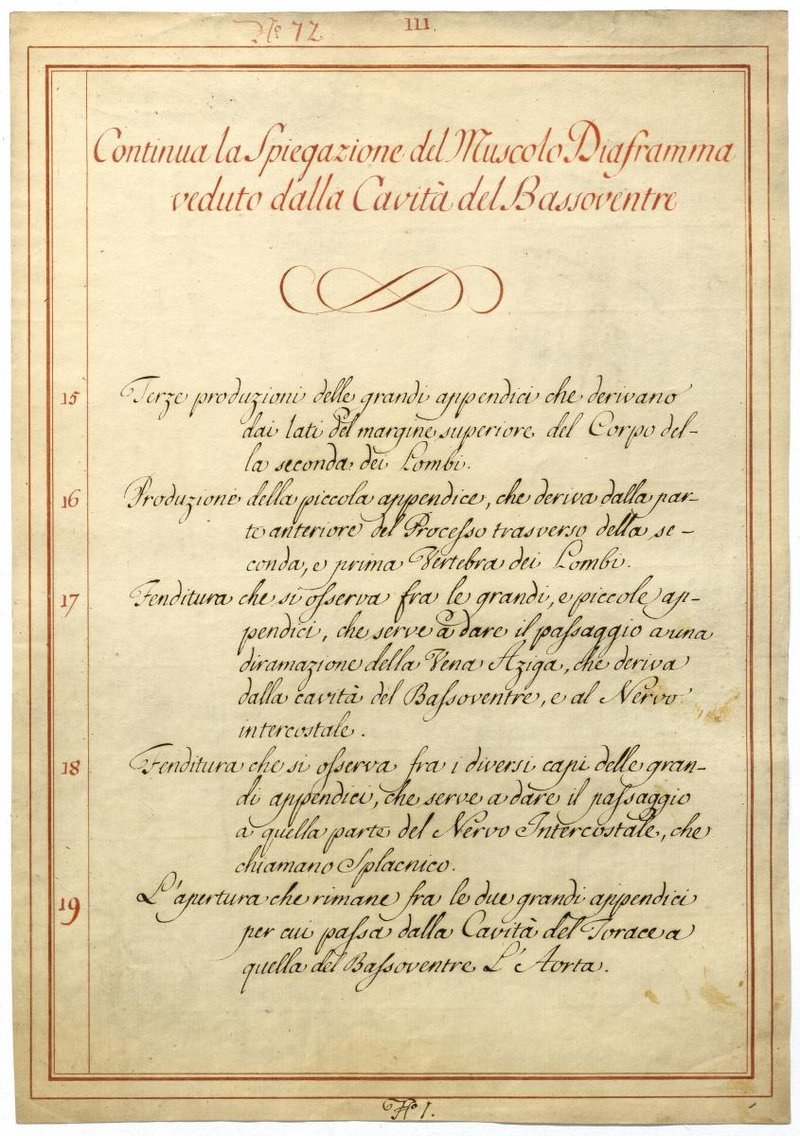 No 72
III.
Continua la Spiegazione del Muscolo Diaframma
veduto dalla Cavità del Bassoventre
15 Terze produzioni delle grandi appendici che derivano
dai lati del margine superiore del Corpo del-
la seconda dei Lombi.
16 Produzione della piccola appendice, che deriva dalla par-
te anteriore del Processo trasverso della se-
conda, e prima Vertebra dei Lombi.
17 Fenditura che si osserva fra le grandi, e piccole ap-
pendici, che serve a dare il passaggio a una
diramazione della Vena Aziga, che deriva
dalla cavità del Bassoventre, e al Nervo
intercostale.
18 Fenditura che si osserva fra i diversi capi delle gran-
di appendici, che serve a dare il passaggio
a quella parte del Nervo Intercostale, che
chiamano Splacnico.
19 L'apertura che rimane fra le due grandi appendici
per cui passa dalla Cavità del Torace a
quella del Bassoventre L'Aorta.